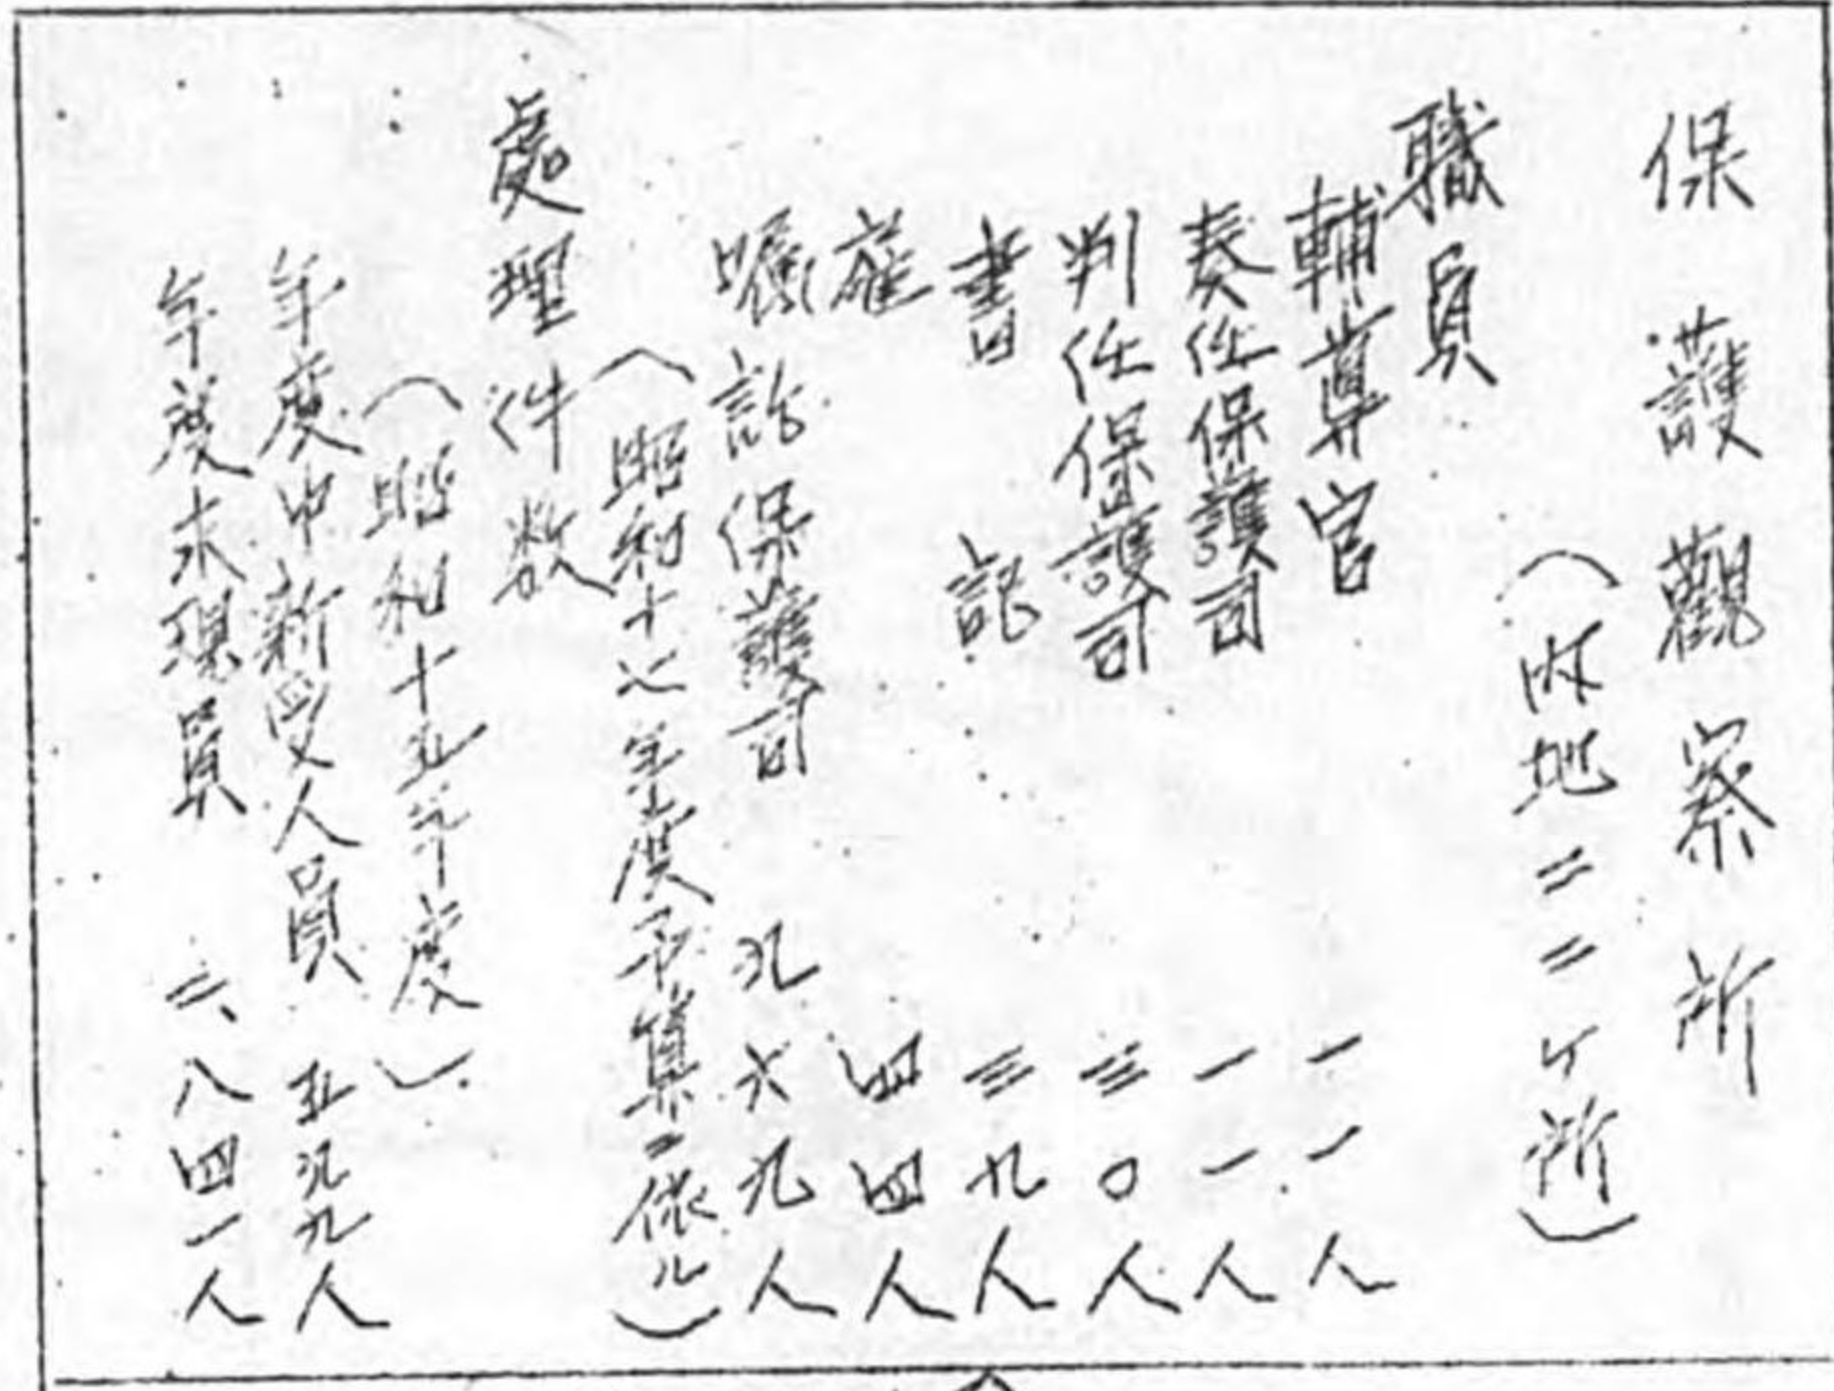 保護觀察所
（内地二二ヶ所）
職員
輔導官 一一人
奏任保護司 一一人
判任保護司 三〇人
書記 三九人
雇 四四人
嘱託保護司 九六九人
（昭和十七年度予算ニ依ル）
處理件数
（昭和十五年度）
年度中新受人員 五九九人
年度末現員 二、八四一人